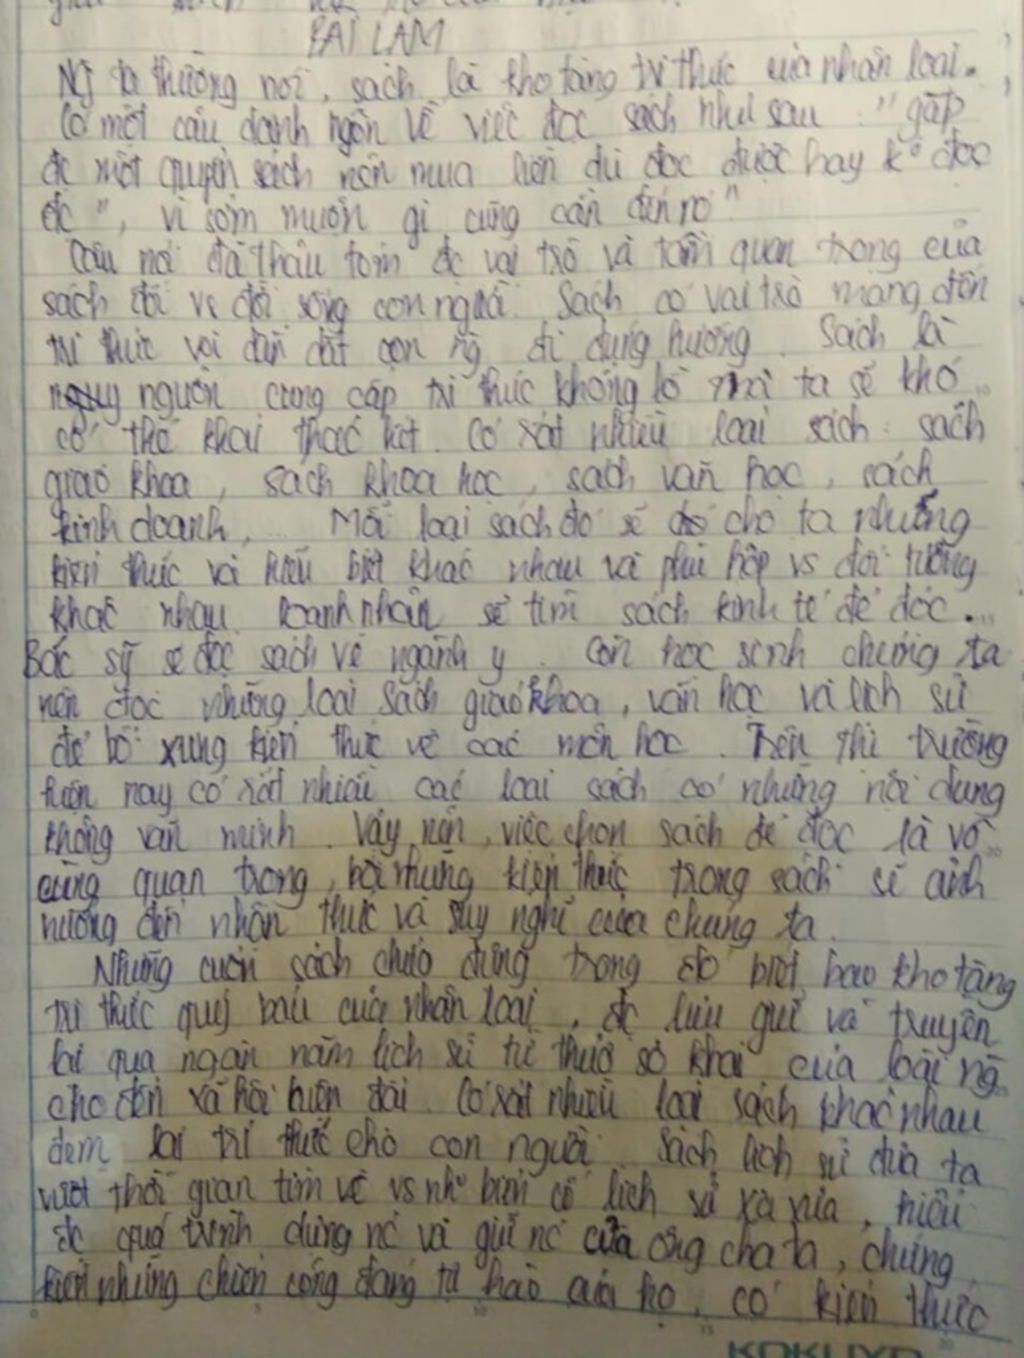 BÀI LÀM
Ng ta thường nói, sách là kho tàng tri thức của nhân loại.
Có một câu danh ngôn về việc đọc sách như sau : "gặp
đc một quyển sách nên mua liền dù đọc được hay ko đọc
đc", vì sớm muộn gì cũng cần đến nó"
Câu nói đã thâu tóm đc vai trò và tầm quan trọng của
sách đối vs đời sống con người. Sách có vai trò mang đến
tri thức và dẫn dắt con ng đi đúng hướng. Sách là
nguồn cung cấp tri thức khổng lồ mà ta sẽ khó
có thể khai thác hết. Có rất nhiều loại sách : sách
giáo khoa, sách khoa học, sách văn học, sách
kinh doanh, ... Mỗi loại sách đó sẽ cho ta những
kiến thức và hiểu biết khác nhau và phù hợp vs đối tượng
khác nhau. Doanh nhân sẽ tìm sách kinh tế để đọc...
Bác sỹ sẽ đọc sách về ngành y. Còn học sinh chúng ta
nên đọc những loại sách giáo khoa, văn học và lịch sử
để bổ xung kiến thức về các môn học. Trên thì trường
hiện nay có rất nhiều các loại sách có những nội dung
không văn minh. Vậy nên, việc chọn sách để đọc là vô
cùng quan trọng, bởi những kiến thức trong sách sẽ ảnh
hưởng đến nhận thức và suy nghĩ của chúng ta.
Những cuốn sách chứa đựng trong đó biết bao kho tàng
tri thức quý báu của nhân loại, đc lưu giữ và truyền
lại qua ngàn năm lịch sử từ thuở sơ khai của loài ng
cho đến xã hội hiện đại. Có rất nhiều loại sách khác nhau
đem lại tri thức cho con người. Sách lịch sử đưa ta
vượt thời gian tìm về vs nh~ biến cố lịch sử xa xưa, hiểu
đc quá trình dựng nc và giữ nc của ông cha ta, chứng
kiến những chiến công đáng tự hào của họ, có kiến thức
KOKUYO